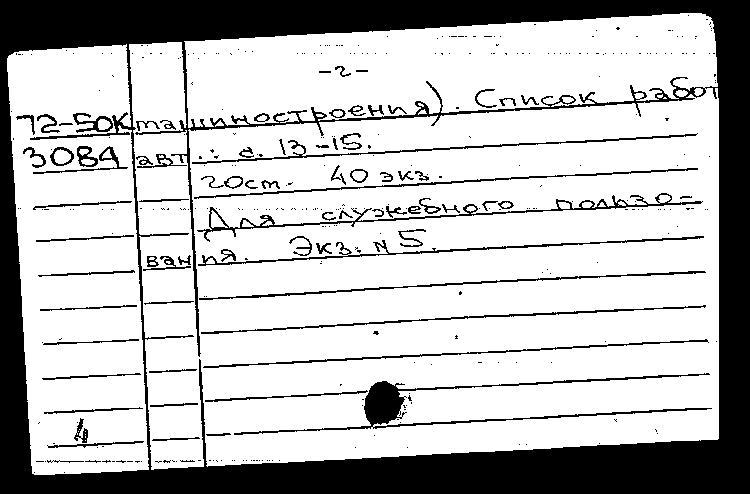 -2-
72-50К машиностроения). Список работ
3084 авт.: с. 13-15.
20 ст. 40 экз.
Для служебного пользо=
вания. Экз. N 5.
4